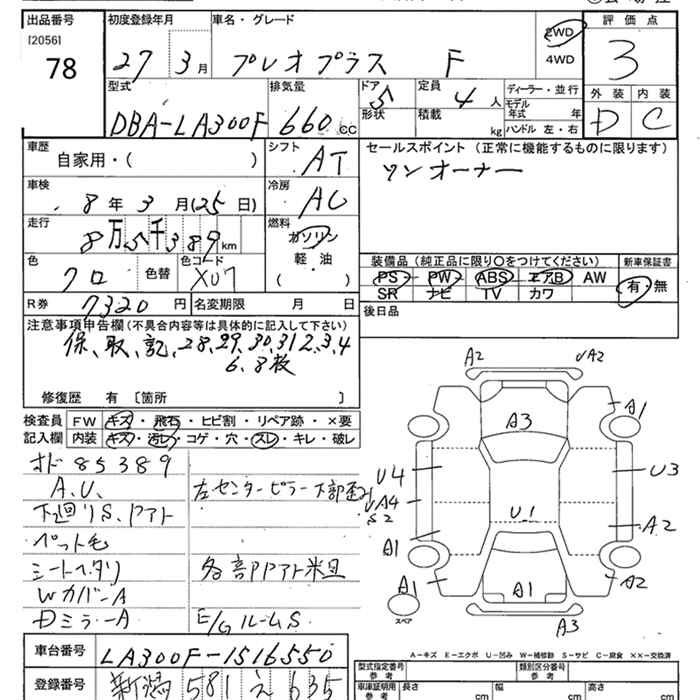 出品番号 初度登録年月 車名・グレード 評価点
[2056]
78
27 3月 プレオプラス F 2WD 4WD 3
型式 排気量 ドア 定員 ディーラー・並行 外装 内装
DBA-LA300F 660cc 5 4人 モデル年式 年 D C
形状 積載 kg ハンドル 左・右
車歴 シフト セールスポイント(正常に機能するものに限ります)
自家用・( ) AT ワンオーナー
車検 冷房
8年 3月(25日) AC
走行 燃料
8万5千389km ガソリン
軽・油
( )
色 色コード 装備品(純正品に限り○をつけてください) 新車保証書
クロ 色替 X07 PS PW ABS エアB AW 有・無
SR ナビ TV カワ
R券 7320円 名変期限 月 日 後日品
注意事項申告欄(不具合内容等は具体的に記入して下さい)
保、取、記、28、29、30、31、2、3、4
6、8枚
修復歴 有 〔箇所 〕
検査員 FW キズ・飛石・ヒビ割・リペア跡・×要
記入欄 内装 キズ・汚レ・コゲ・穴・スレ・キレ・破レ
オド 85389
A.U、
左センターピラー下部歪ミ
下廻りS、Pアト
ペット毛
シートヘタリ
各部PPアト
WカバーA
DミラーA
E/GルームS
A2 A2
A1
A3
U4 U3
A4
S2 U1 A2
A1
A1 A1 A2
スペア
A3
A-キズ E-エクボ U-凹み W-補修跡 S-サビ C-腐食 XX-交換済
車台番号 LA300F-1516550
型式指定番号 参考 類別区分番号 参考
登録番号 新潟 581 え 635
車庫証明用 参考 長さ cm 幅 cm 高さ cm